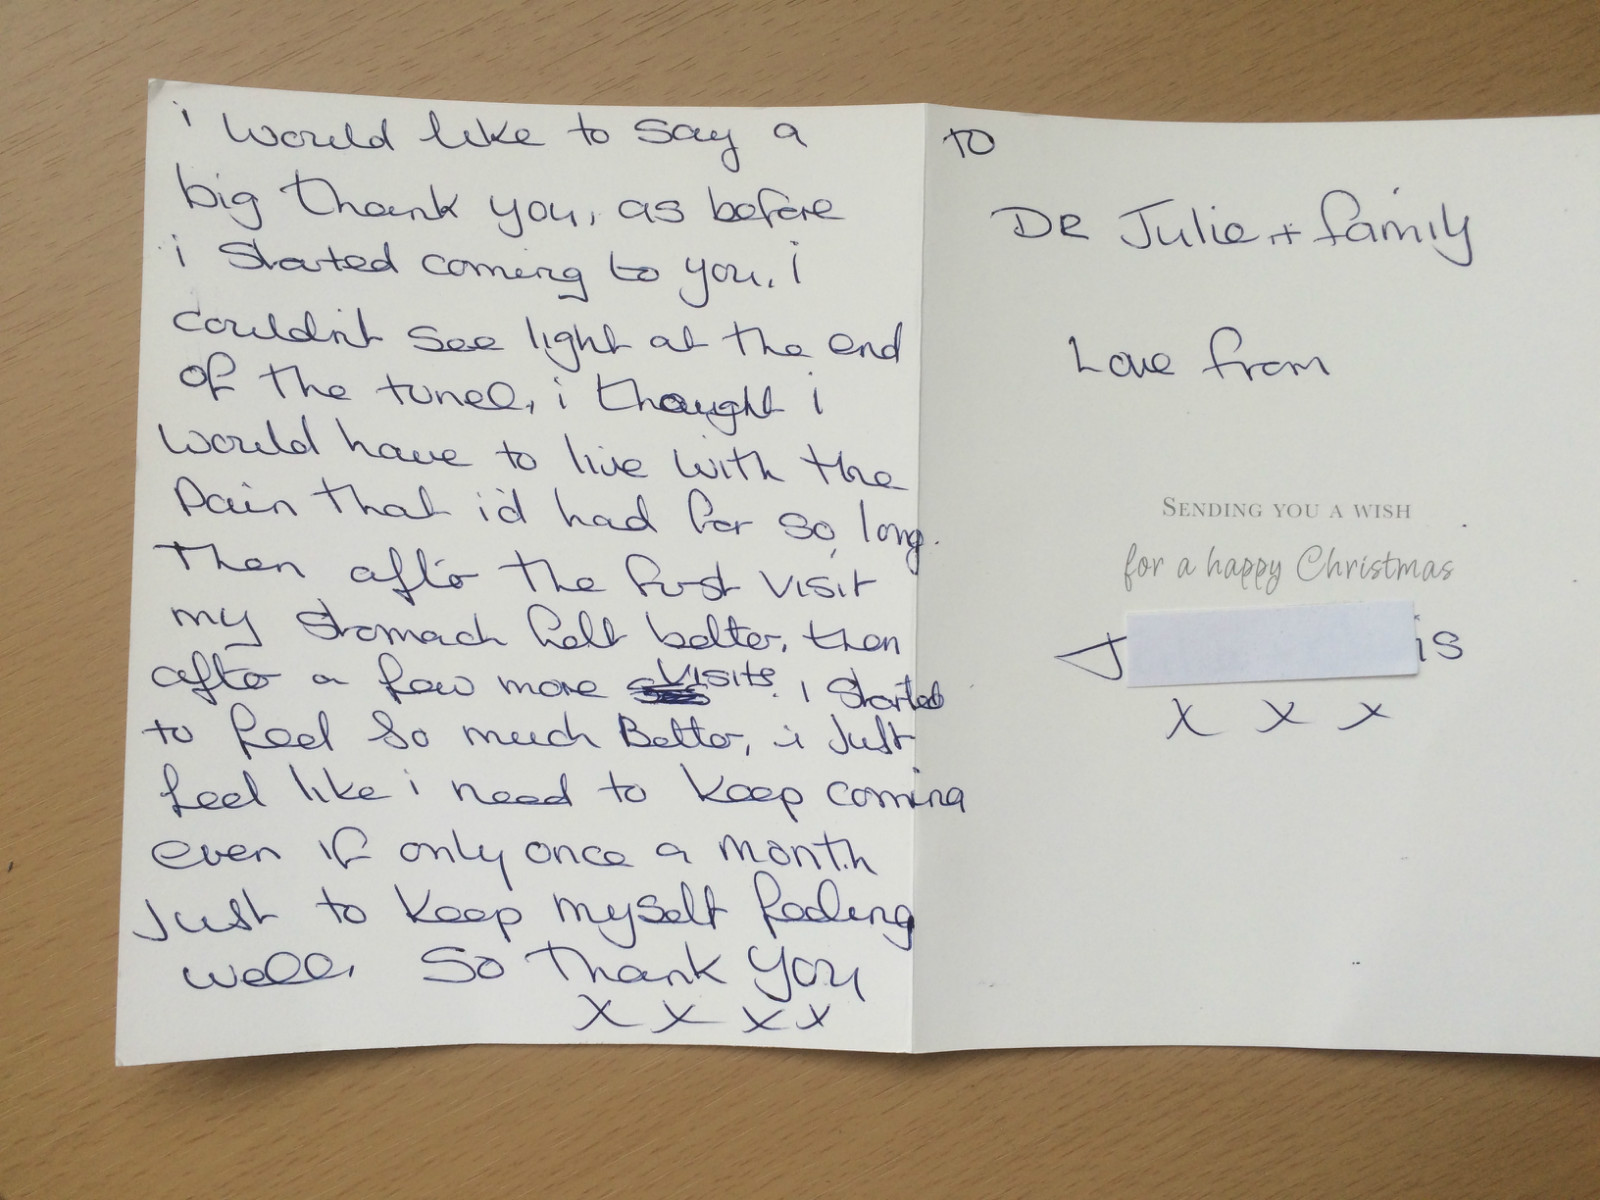 i would like to say a
big thank you, as before
i started coming to you, i
couldn't see light at the end
of the tunel, i thought i
would have to live with the
Pain that i'd had for so long.
Then after the first visit
my stomach felt better, then
after a few more visits. i started
to feel so much Better, i Just
feel like i need to keep coming
even if only once a month
Just to keep myself feeling
well, So thank you
x x x x
to
DR Julie + family
Love from
SENDING YOU A WISH
for a happy Christmas
J is
x x x